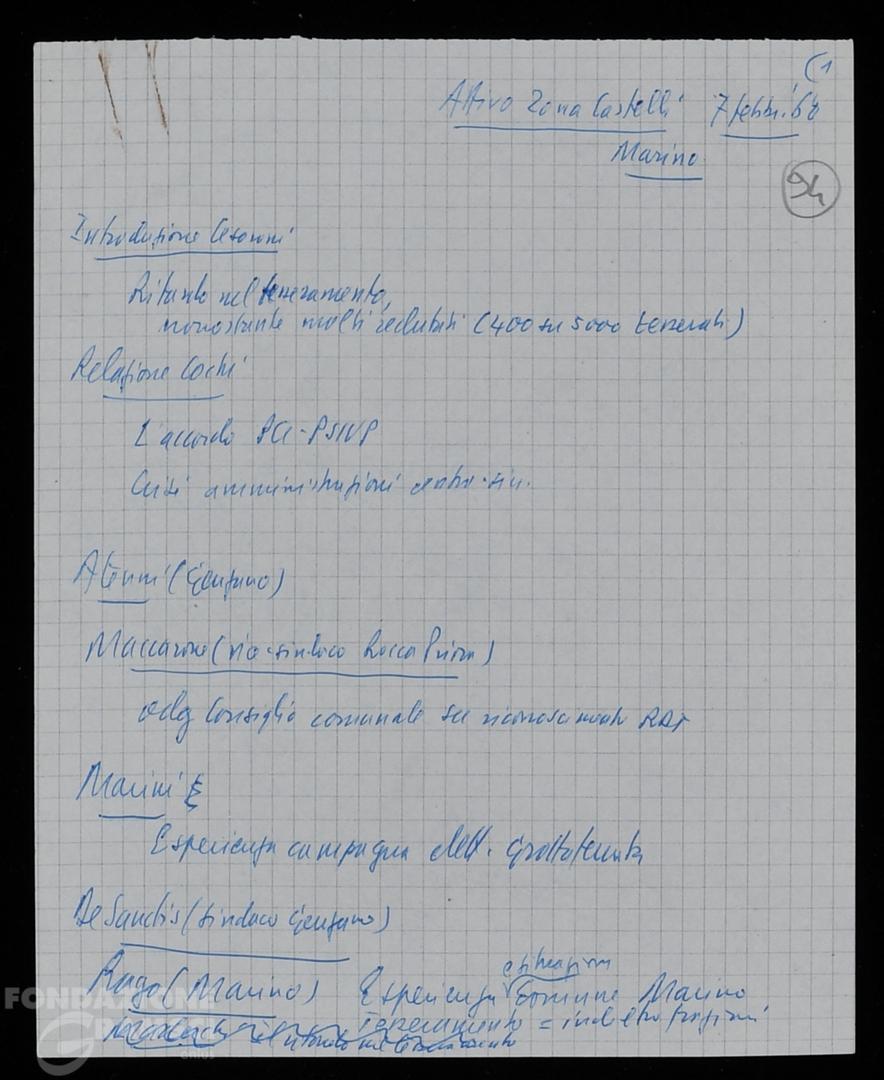 (1
Attivo Zona Castelli 7 febbr. 68
Marino
94
Introduzione Cesaroni
Ritardo nel tesseramento,
nonostante molti reclutati (400 su 5000 tesserati)
Relazione Cochi
L'accordo PCI-PSIUP
Crisi amministrazioni centro-sin.
Atenni (Genzano)
Maccarone (vice-sindaco Rocca Priora)
odg Consiglio comunale su riconoscimento RDT
Marini E
Esperienza campagna elett. Grottaferrata
De Sanctis (sindaco Genzano)
Rugo (Marino) Esperienza Comune Marino
Tesseramento = indietro
il ritardo nel tesseramento
FONDAZIONE
G